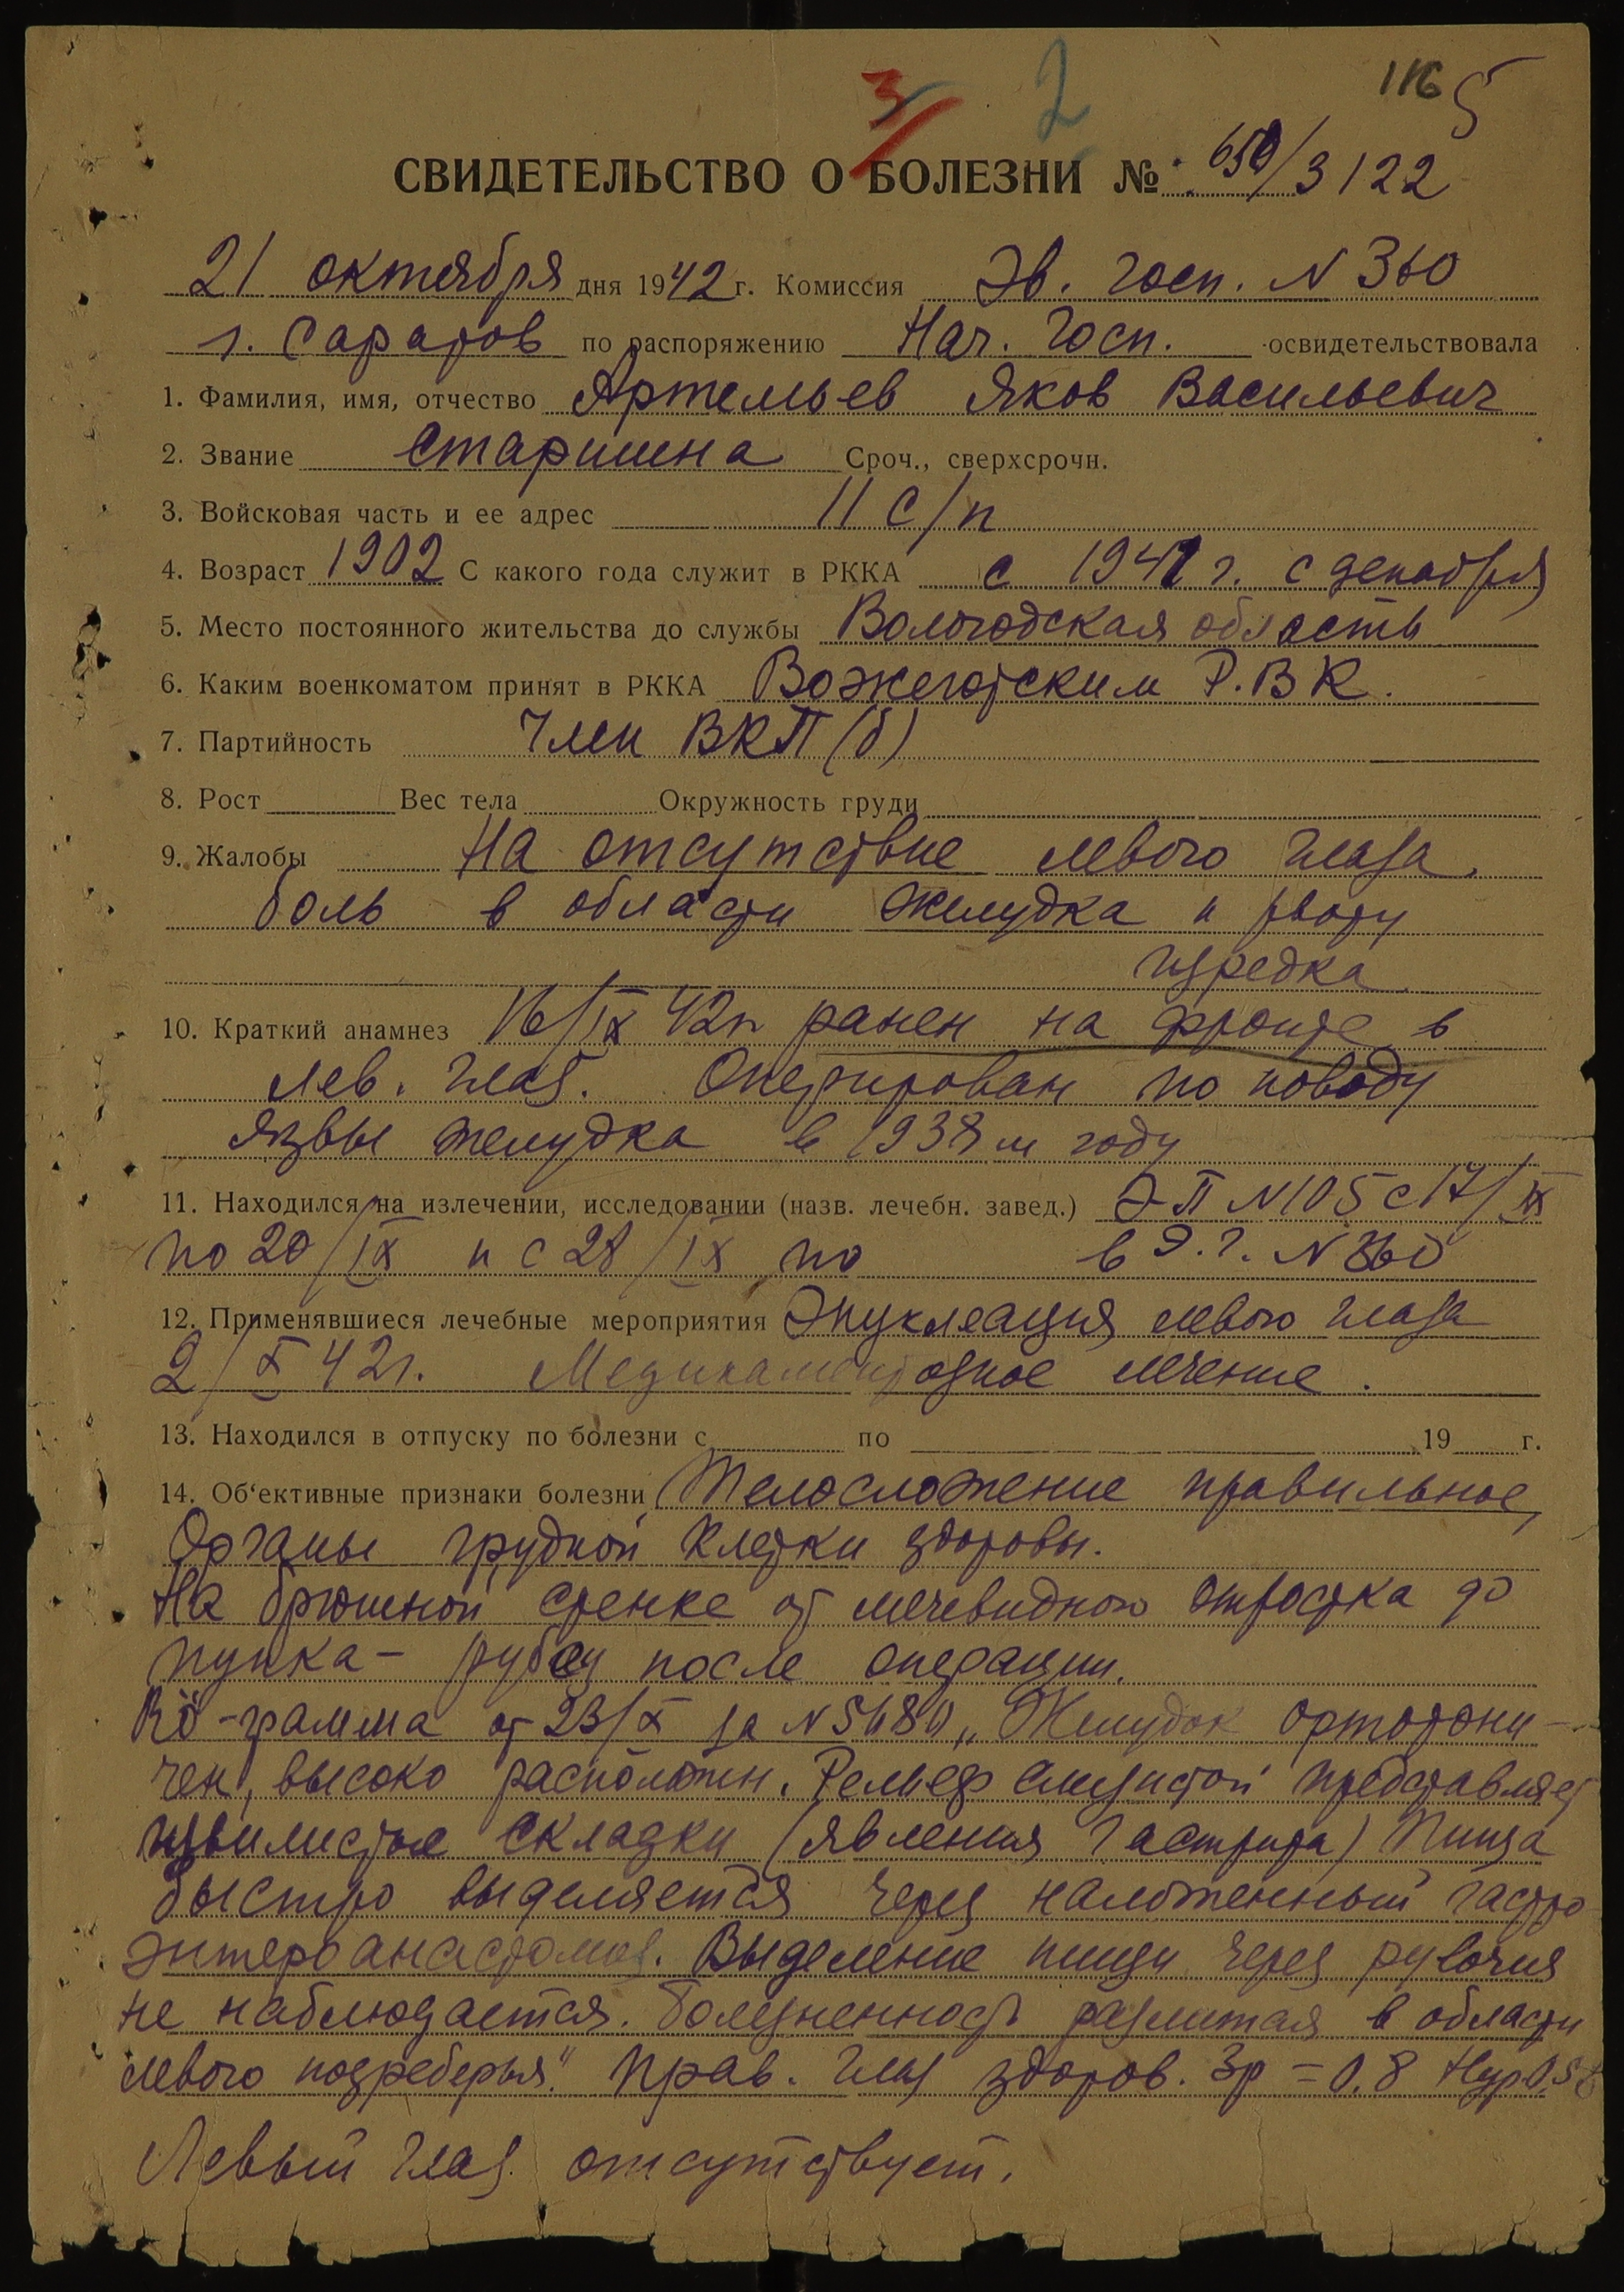 3 2 116 5
СВИДЕТЕЛЬСТВО О БОЛЕЗНИ № 650/3122
21 октября дня 1942 г. Комиссия Эв. Госп. N 360
г. Саратов по распоряжению Нач. Госп. освидетельствовала
1. Фамилия, имя, отчество Артемьев Яков Васильевич
2. Звание старшина Сроч., сверхсрочн.
3. Войсковая часть и ее адрес 11 с/п
4. Возраст 1902 С какого года служит в РККА с 1941 г. с декабря
5. Место постоянного жительства до службы Вологодская область
6. Каким военкоматом принят в РККА Вожегодским Р.В.К.
7. Партийность Член ВКП(б)
8. Рост Вес тела Окружность груди
9. Жалобы На отсутствие левого глаза,
боль в области желудка и рвоту
изредка
10. Краткий анамнез 16/IX 42г ранен на фронте в
лев. глаз. Оперирован по поводу
язвы желудка в 1938 м году
11. Находился на излечении, исследовании (назв. лечебн. завед.) ЭП N 105 с 17/IX
по 20/IX и с 28/IX по в Э.Г. N 360
12. Применявшиеся лечебные мероприятия Энуклеация левого глаза
2/X 42г. Медикаментозное лечение.
13. Находился в отпуску по болезни с по 19 г.
14. Об‘ективные признаки болезни Телосложение правильное,
Органы грудной клетки здоровы.
На брюшной стенке от мечевидного отростка до
пупка – рубец после операции.
Rö-грамма от 23/X за N 5480 „Желудок ортотони-
чен, высоко расположен. Рельеф слизистой представляет
извилистые складки (явления гастрита) Пища
быстро выделяется через наложенный гастро
энтероанастомоз. Выделение пищи через
не наблюдается. Болезненность разлитая в области
левого подреберья." Прав. глаз здоров. Зр = 0.8
Левый глаз отсутствует.